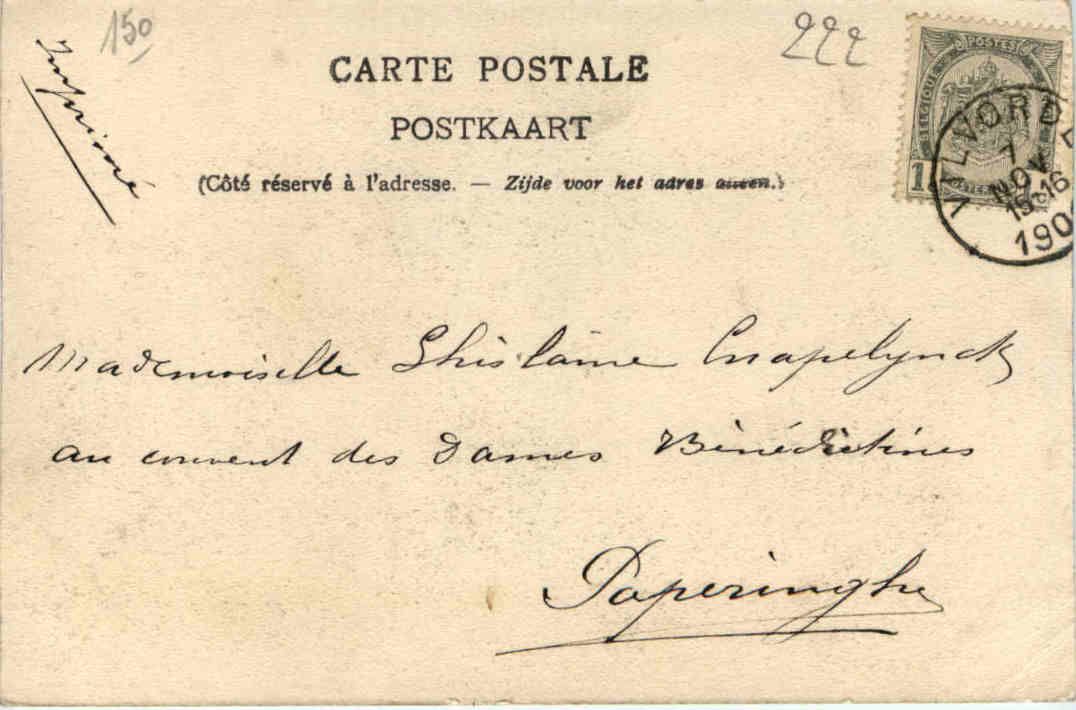 150
222
Imprimé
CARTE POSTALE
POSTKAART
(Côté réservé à l'adresse. — Zijde voor het adres alleen.)
POSTES
BELGIQUE
1
VILVORDE
7
NOV
15-16
190
Mademoiselle Ghislaine
au couvent des Dames Bénédictines
Poperinghe